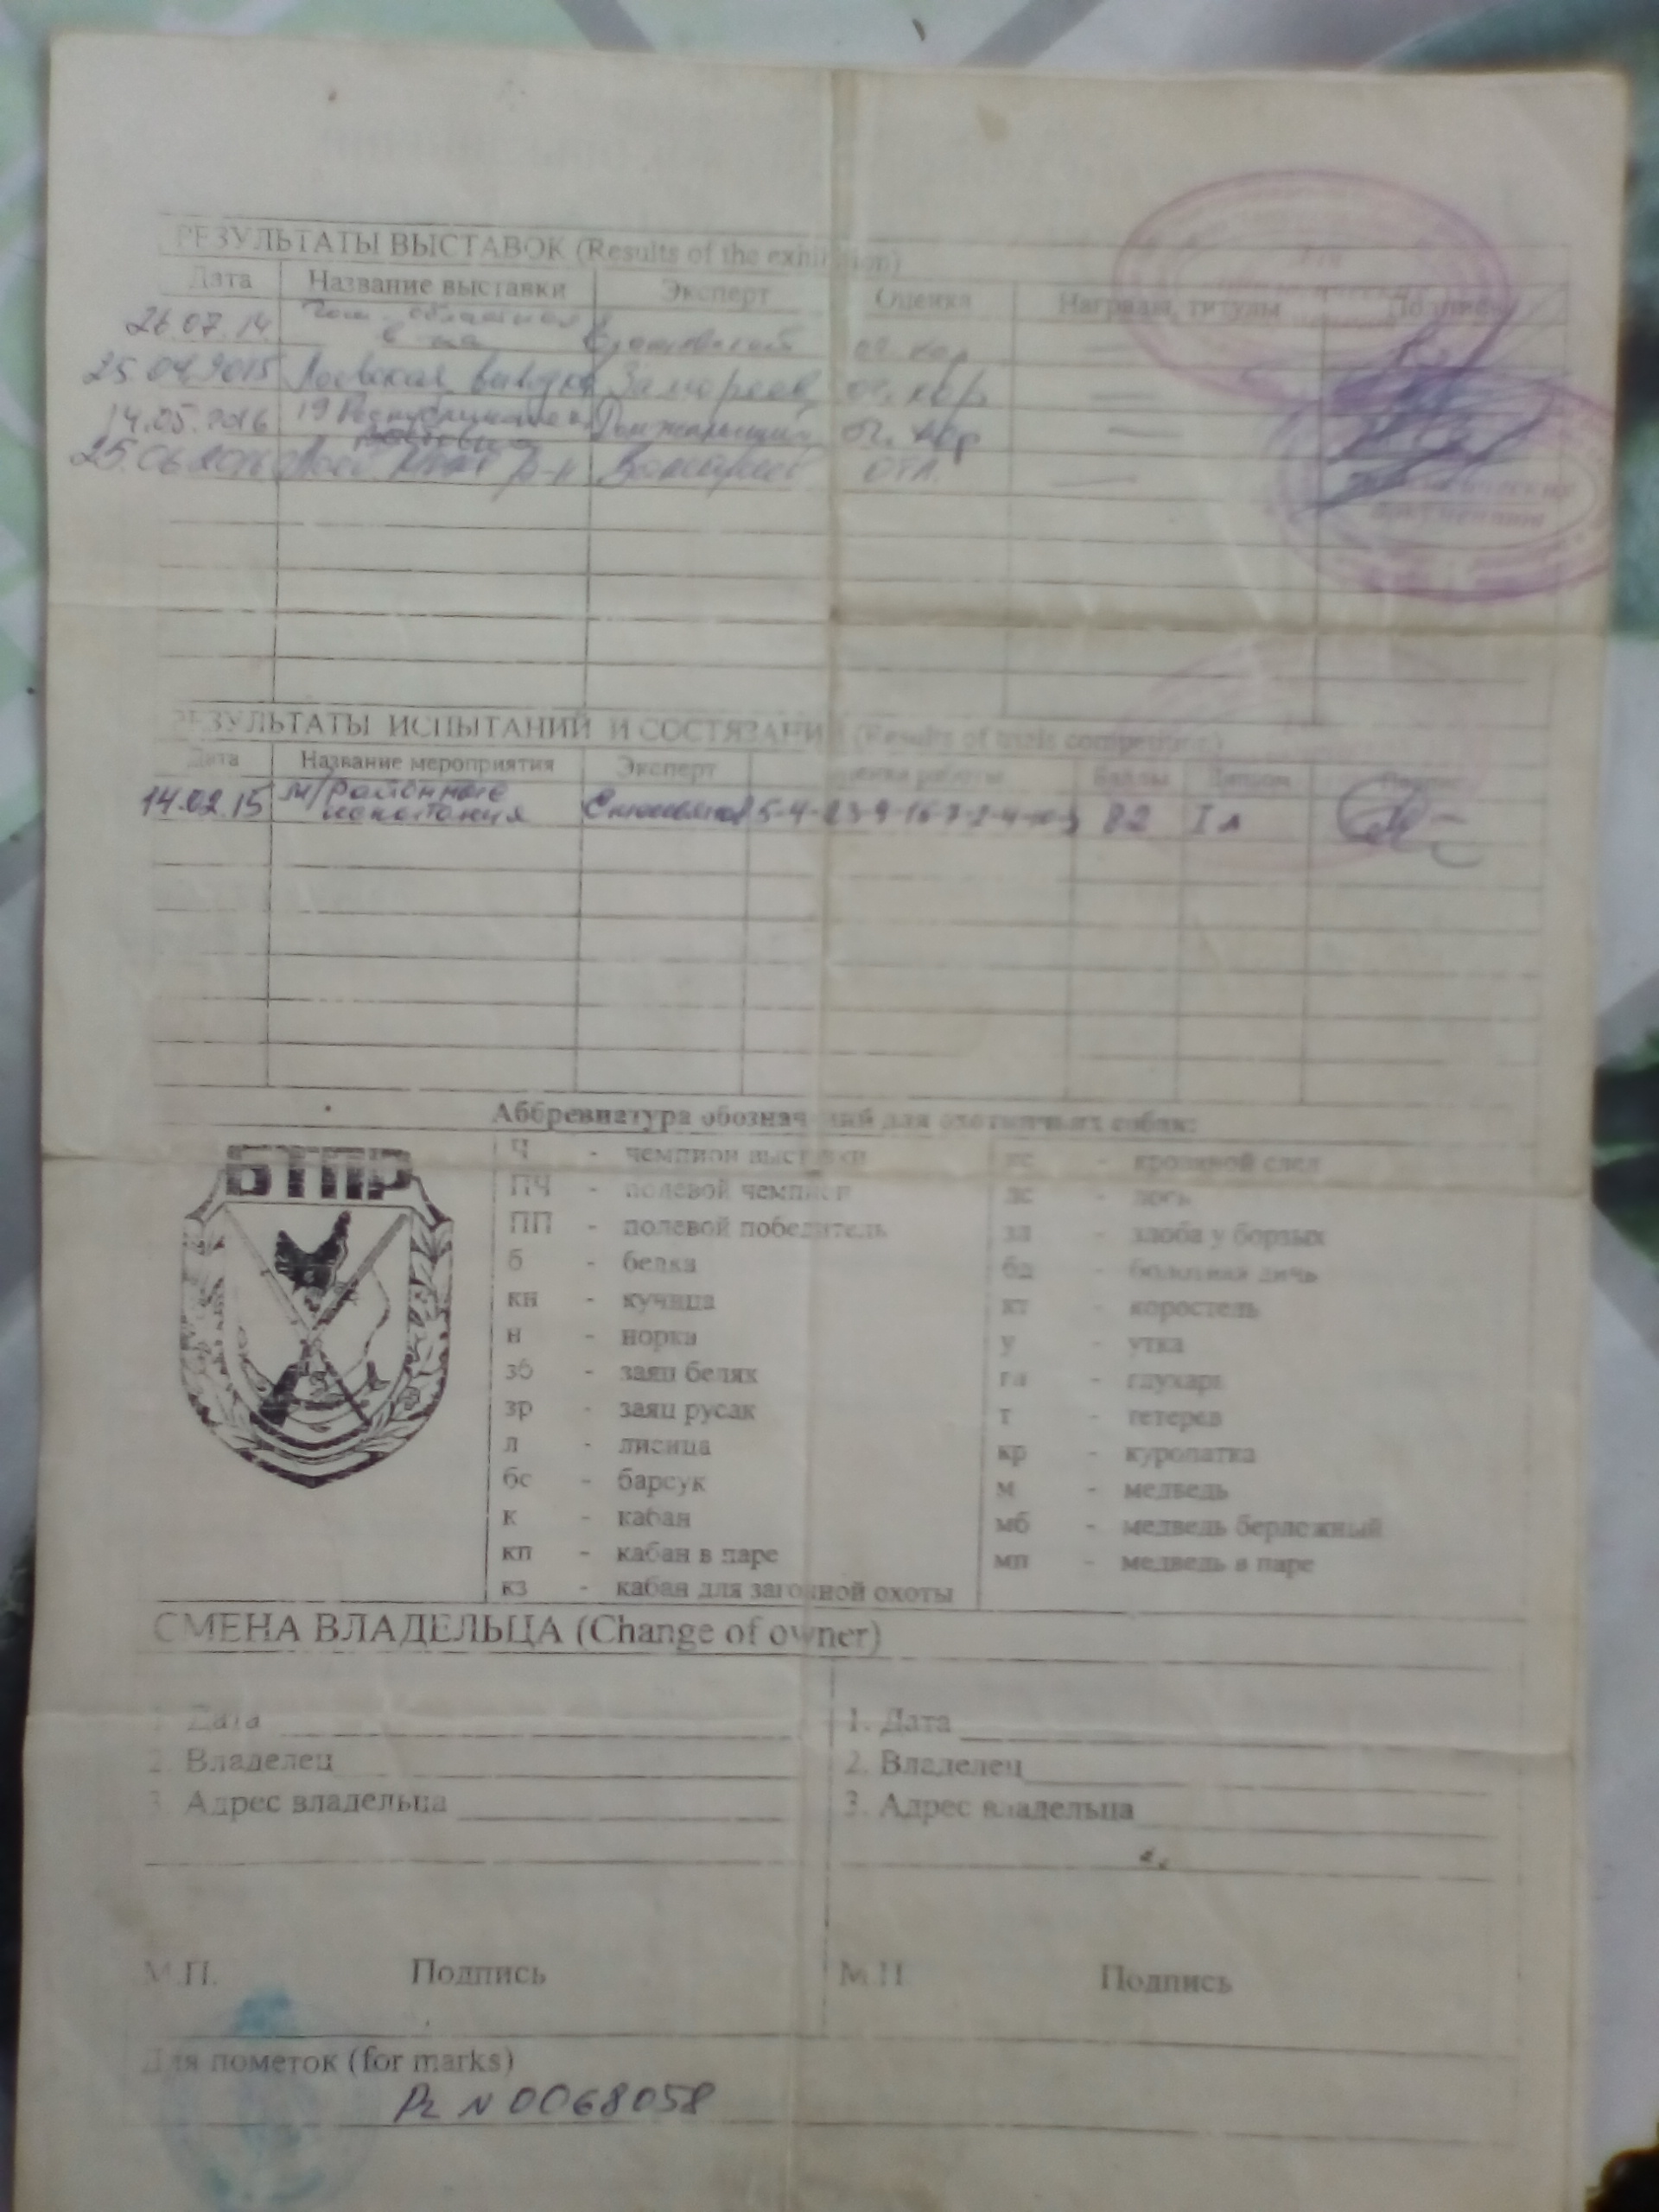 РЕЗУЛЬТАТЫ ВЫСТАВОК (Results of the exhibition)
Дата Название выставки Эксперт Оценка Награды, титулы Подпись
26.07.14 оч. хор
25.04.2015 Лоевская выводка оч. хор
14.05.2016 19 Республиканская оч. хор
25.06.2016 р-н отл.
документов
РЕЗУЛЬТАТЫ ИСПЫТАНИЙ И СОСТЯЗАНИЙ (Results of trials competitions)
Дата Название мероприятия Эксперт оценка работы Баллы Диплом Подпись
14.02.15 м/районные 82 I л
испытания
Аббревиатура обозначений для охотничьих собак:
БТПР
Ч - чемпион выставки
ПЧ - полевой чемпион
ПП - полевой победитель
б - белка
кн - куница
н - норка
зб - заяц беляк
зр - заяц русак
л - лисица
бс - барсук
к - кабан
кп - кабан в паре
кз - кабан для загонной охоты
кс - кровяной след
лс - лось
зл - злоба у борзых
бд - болотная дичь
кт - коростель
у - утка
гл - глухарь
т - тетерев
кр - куропатка
м - медведь
мб - медведь берложный
мп - медведь в паре
СМЕНА ВЛАДЕЛЬЦА (Change of owner)
1. Дата
2. Владелец
3. Адрес владельца
М.П. Подпись
1. Дата
2. Владелец
3. Адрес владельца
М.П Подпись
Для пометок (for marks)
N 0068058